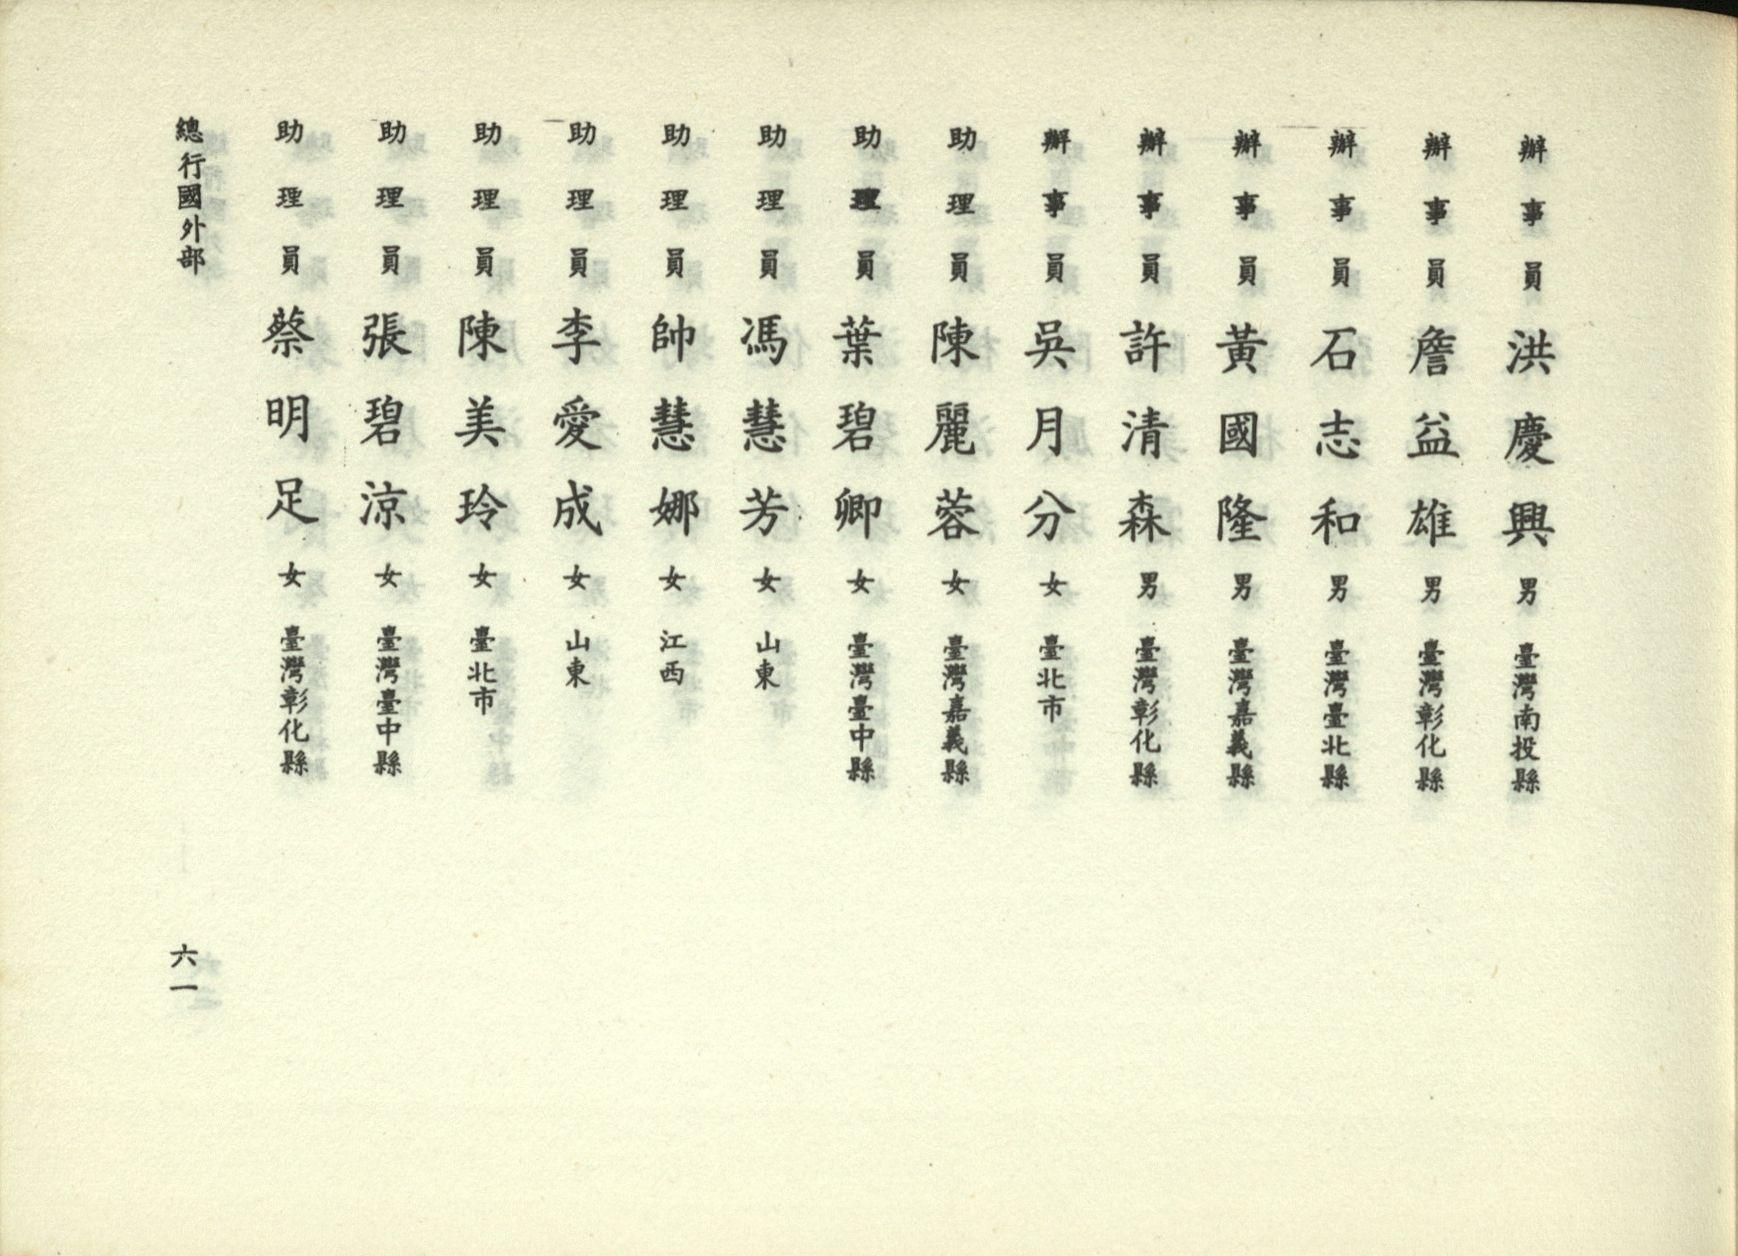 辦事員洪慶興男臺灣南投縣
辦事員詹益雄男臺灣彰化縣
辦事員石志和男臺灣臺北縣
辦事員黃國隆男臺灣嘉義縣
辦事員許清森男臺灣彰化縣
辦事員吳月分女臺北市
助理員陳麗蓉女臺灣嘉義縣
助理員葉碧卿女臺灣臺中縣
助理員馮慧芳女山東
助理員帥慧娜女江西
助理員李愛成女山東
助理員陳美玲女臺北市
助理員張碧涼女臺灣臺中縣
助理員蔡明足女臺灣彰化縣
總行國外部
六一